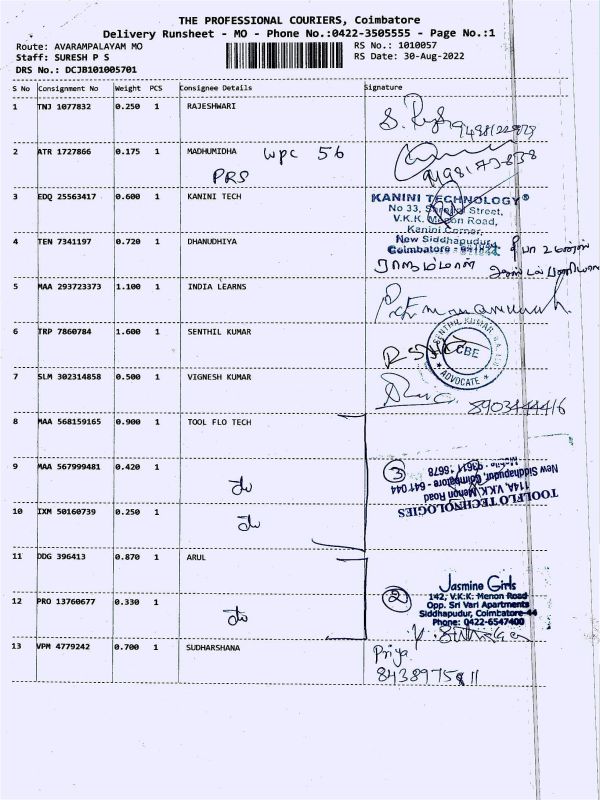 THE PROFESSIONAL COURIERS, Coimbatore
Delivery Runsheet - MO - Phone No.:0422-3505555 - Page No.:1
Route: AVARAMPALAYAM MO RS No.: 1010057
Staff: SURESH P S RS Date: 30-Aug-2022
DRS No.: DCJB101005701
S No Consignment No Weight PCS Consignee Details Signature
1 TNJ 1077832 0.250 1 RAJESHWARI
2 ATR 1727866 0.175 1 MADHUMIDHA WPC 56
PRS
3 EDQ 25563417 0.600 1 KANINI TECH KANINI TECHNOLOGY®
No 33, Street,
V.K.K. Menon Road,
Kanini Corner,
New Siddhapudur,
Coimbatore -
4 TEN 7341197 0.720 1 DHANUDHIYA
5 MAA 293723373 1.100 1 INDIA LEARNS
6 TRP 7860784 1.600 1 SENTHIL KUMAR
SENTHIL KUMAR
CBE
★ ADVOCATE ★
7 SLM 302314858 0.500 1 VIGNESH KUMAR
8903444416
8 MAA 568159165 0.900 1 TOOL FLO TECH
9 MAA 567999481 0.420 1 do 3
TOOLFLO TECHNOLOGIES
114A, V.K.K. Menon Road
New Siddhapudur, Coimbatore - 641 044
10 IXM 50160739 0.250 1 do
11 DDG 396413 0.870 1 ARUL
12 PRO 13760677 0.330 1 do 2
Jasmine Girls
142, V.K.K. Menon Road
Opp. Sri Vari Apartments
Siddhapudur, Coimbatore-44
Phone: 0422-6547400
13 VPM 4779242 0.700 1 SUDHARSHANA Priya